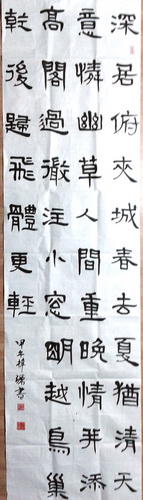 深居俯夾城春去夏猶清天
意憐幽草人間重晚情并添
高閣過徹注小窗明越鳥巢
乾後歸飛體更輕
甲午 書